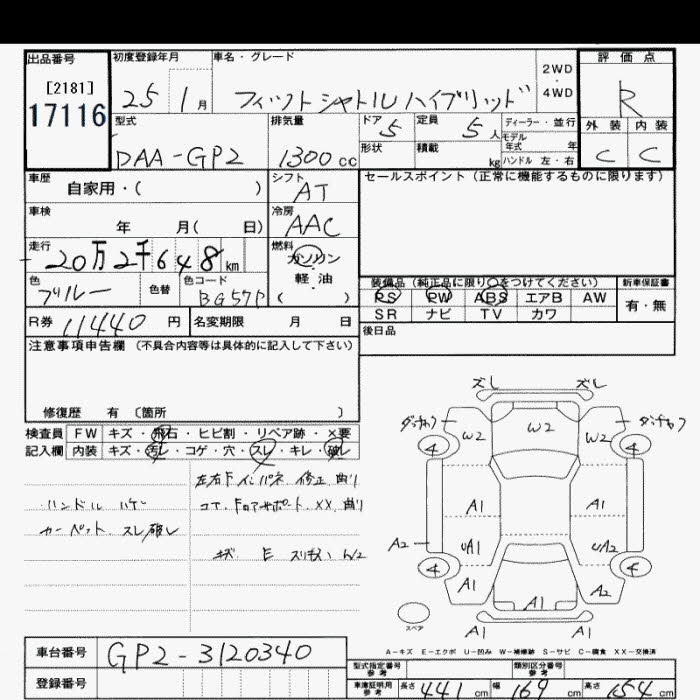 出品番号 初度登録年月 車名・グレード 評価点
[2181] 2WD
17116 25 1月 フィットシャトルハイブリッド ・4WD R
型式 排気量 ドア 5 定員 5人 ディーラー・並行 外装 内装
DAA-GP2 1300cc 形状 積載 kg モデル年式 年 C C
ハンドル 左・右
車歴 自家用・( ) シフト AT セールスポイント (正常に機能するものに限ります)
車検 年 月( 日) 冷房 AAC
走行 20万2千648km 燃料 ガソリン
軽油
( )
色 ブルー 色替 色コード BG57P 装備品 (純正品に限り○をつけてください) 新車保証書
PS PW ABS エアB AW 有・無
R券 11440円 名変期限 月 日 SR ナビ TV カワ
注意事項申告欄 (不具合内容等は具体的に記入して下さい) 後日品
修復歴 有 〔箇所 〕
検査員 FW キズ・飛石・ヒビ割・リペア跡・×要
記入欄 内装 キズ・汚レ・コゲ・穴・スレ・キレ・破レ
左右Fインパネ 修正 曲り
ハンドル ハゲ コアサポート XX 曲り
カーペット スレ破レ
キズ E
ズレ ズレ
W2 W2 W2
4 4
A1 A1
A2 UA1 UA2
4 4
A1 A1 A2
スペア A1 A1
A-キズ E-エクボ U-凹み W-補修跡 S-サビ C-腐食 XX-交換済
車台番号 GP2-3120340
登録番号
型式指定番号 参考 類別区分番号 参考
車庫証明用 参考 長さ 441cm 幅 169cm 高さ 154cm